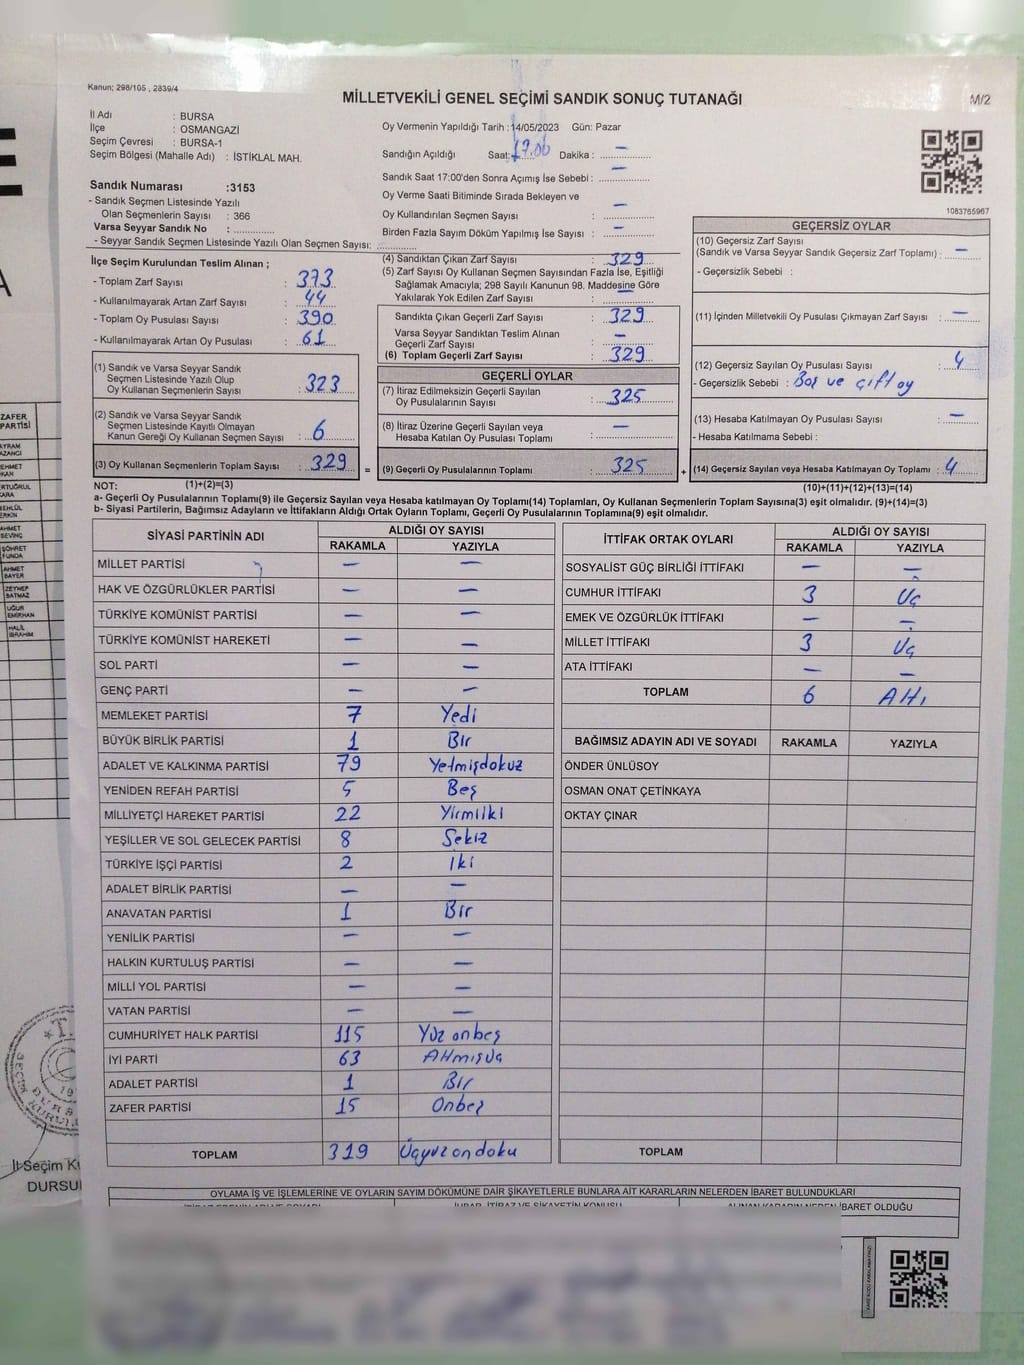 Kanun; 298/105 , 2839/4
MİLLETVEKİLİ GENEL SEÇİMİ SANDIK SONUÇ TUTANAĞI
M/2
İl Adı : BURSA
İlçe : OSMANGAZİ
Seçim Çevresi : BURSA-1
Seçim Bölgesi (Mahalle Adı) : İSTİKLAL MAH.
Sandık Numarası :3153
- Sandık Seçmen Listesinde Yazılı
Olan Seçmenlerin Sayısı : 366
Varsa Seyyar Sandık No :
- Seyyar Sandık Seçmen Listesinde Yazılı Olan Seçmen Sayısı:
Oy Vermenin Yapıldığı Tarih : 14/05/2023 Gün: Pazar
Sandığın Açıldığı Saat: 17.00 Dakika : —
Sandık Saat 17:00'den Sonra Açımış İse Sebebi : —
Oy Verme Saati Bitiminde Sırada Bekleyen ve
Oy Kullandırılan Seçmen Sayısı : —
Birden Fazla Sayım Döküm Yapılmış İse Sayısı : —
1083765967
İlçe Seçim Kurulundan Teslim Alınan ;
- Toplam Zarf Sayısı : 373
- Kullanılmayarak Artan Zarf Sayısı : 44
- Toplam Oy Pusulası Sayısı : 390
- Kullanılmayarak Artan Oy Pusulası : 61
(1) Sandık ve Varsa Seyyar Sandık
Seçmen Listesinde Yazılı Olup
Oy Kullanan Seçmenlerin Sayısı : 323
(2) Sandık ve Varsa Seyyar Sandık
Seçmen Listesinde Kayıtlı Olmayan
Kanun Gereği Oy Kullanan Seçmen Sayısı : 6
(3) Oy Kullanan Seçmenlerin Toplam Sayısı : 329 =
(4) Sandıktan Çıkan Zarf Sayısı : 329
(5) Zarf Sayısı Oy Kullanan Seçmen Sayısından Fazla İse, Eşitliği
Sağlamak Amacıyla; 298 Sayılı Kanunun 98. Maddesine Göre
Yakılarak Yok Edilen Zarf Sayısı : —
Sandıkta Çıkan Geçerli Zarf Sayısı : 329
Varsa Seyyar Sandıktan Teslim Alınan
Geçerli Zarf Sayısı : —
(6) Toplam Geçerli Zarf Sayısı : 329
GEÇERLİ OYLAR
(7) İtiraz Edilmeksizin Geçerli Sayılan
Oy Pusulalarının Sayısı : 325
(8) İtiraz Üzerine Geçerli Sayılan veya
Hesaba Katılan Oy Pusulası Toplamı : —
(9) Geçerli Oy Pusulalarının Toplamı : 325 +
GEÇERSİZ OYLAR
(10) Geçersiz Zarf Sayısı
(Sandık ve Varsa Seyyar Sandık Geçersiz Zarf Toplamı) : —
- Geçersizlik Sebebi :
(11) İçinden Milletvekili Oy Pusulası Çıkmayan Zarf Sayısı : —
(12) Geçersiz Sayılan Oy Pusulası Sayısı : 4
- Geçersizlik Sebebi : Boş ve çift oy
(13) Hesaba Katılmayan Oy Pusulası Sayısı : —
- Hesaba Katılmama Sebebi :
(14) Geçersiz Sayılan veya Hesaba Katılmayan Oy Toplamı : 4
NOT: (1)+(2)=(3) (10)+(11)+(12)+(13)=(14)
a- Geçerli Oy Pusulalarının Toplamı(9) ile Geçersiz Sayılan veya Hesaba katılmayan Oy Toplamı(14) Toplamları, Oy Kullanan Seçmenlerin Toplam Sayısına(3) eşit olmalıdır. (9)+(14)=(3)
b- Siyasi Partilerin, Bağımsız Adayların ve İttifakların Aldığı Ortak Oyların Toplamı, Geçerli Oy Pusulalarının Toplamına(9) eşit olmalıdır.
SİYASİ PARTİNİN ADI ALDIĞI OY SAYISI
RAKAMLA YAZIYLA
MİLLET PARTİSİ — —
HAK VE ÖZGÜRLÜKLER PARTİSİ — —
TÜRKİYE KOMÜNİST PARTİSİ — —
TÜRKİYE KOMÜNİST HAREKETİ — —
SOL PARTİ — —
GENÇ PARTİ — —
MEMLEKET PARTİSİ 7 Yedi
BÜYÜK BİRLİK PARTİSİ 1 Bir
ADALET VE KALKINMA PARTİSİ 79 Yetmişdokuz
YENİDEN REFAH PARTİSİ 5 Beş
MİLLİYETÇİ HAREKET PARTİSİ 22 Yirmiiki
YEŞİLLER VE SOL GELECEK PARTİSİ 8 Sekiz
TÜRKİYE İŞÇİ PARTİSİ 2 İki
ADALET BİRLİK PARTİSİ — —
ANAVATAN PARTİSİ 1 Bir
YENİLİK PARTİSİ — —
HALKIN KURTULUŞ PARTİSİ — —
MİLLİ YOL PARTİSİ — —
VATAN PARTİSİ — —
CUMHURİYET HALK PARTİSİ 115 Yüz onbeş
İYİ PARTİ 63 Altmışüç
ADALET PARTİSİ 1 Bir
ZAFER PARTİSİ 15 Onbeş
TOPLAM 319 Üçyüz ondoku
İTTİFAK ORTAK OYLARI ALDIĞI OY SAYISI
RAKAMLA YAZIYLA
SOSYALİST GÜÇ BİRLİĞİ İTTİFAKI — —
CUMHUR İTTİFAKI 3 Üç
EMEK VE ÖZGÜRLÜK İTTİFAKI — —
MİLLET İTTİFAKI 3 Üç
ATA İTTİFAKI — —
TOPLAM 6 Altı
BAĞIMSIZ ADAYIN ADI VE SOYADI RAKAMLA YAZIYLA
ÖNDER ÜNLÜSOY
OSMAN ONAT ÇETİNKAYA
OKTAY ÇINAR
TOPLAM
OYLAMA İŞ VE İŞLEMLERİNE VE OYLARIN SAYIM DÖKÜMÜNE DAİR ŞİKAYETLERLE BUNLARA AİT KARARLARIN NELERDEN İBARET BULUNDUKLARI
ZAFER
PARTİSİ
İl Seçim
DURSU